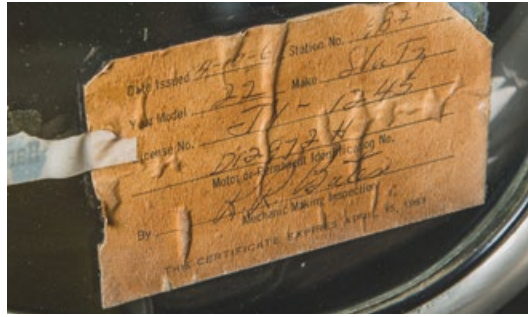 Date Issued Station No. 587
Year Model 22 Make Stutz
License No. JH-1245
D12972H
Motor or Permanent Identification No.
By
Mechanic Making Inspection
THIS CERTIFICATE EXPIRES APRIL 15, 1963